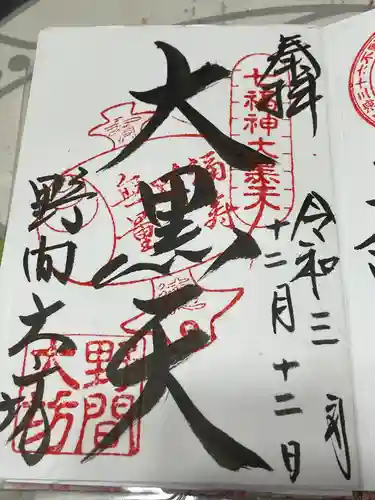 奉拝
令和三年
十二月十二日
七福神大黒天
大黒天
福壽
無量
野間大坊
野間
大坊